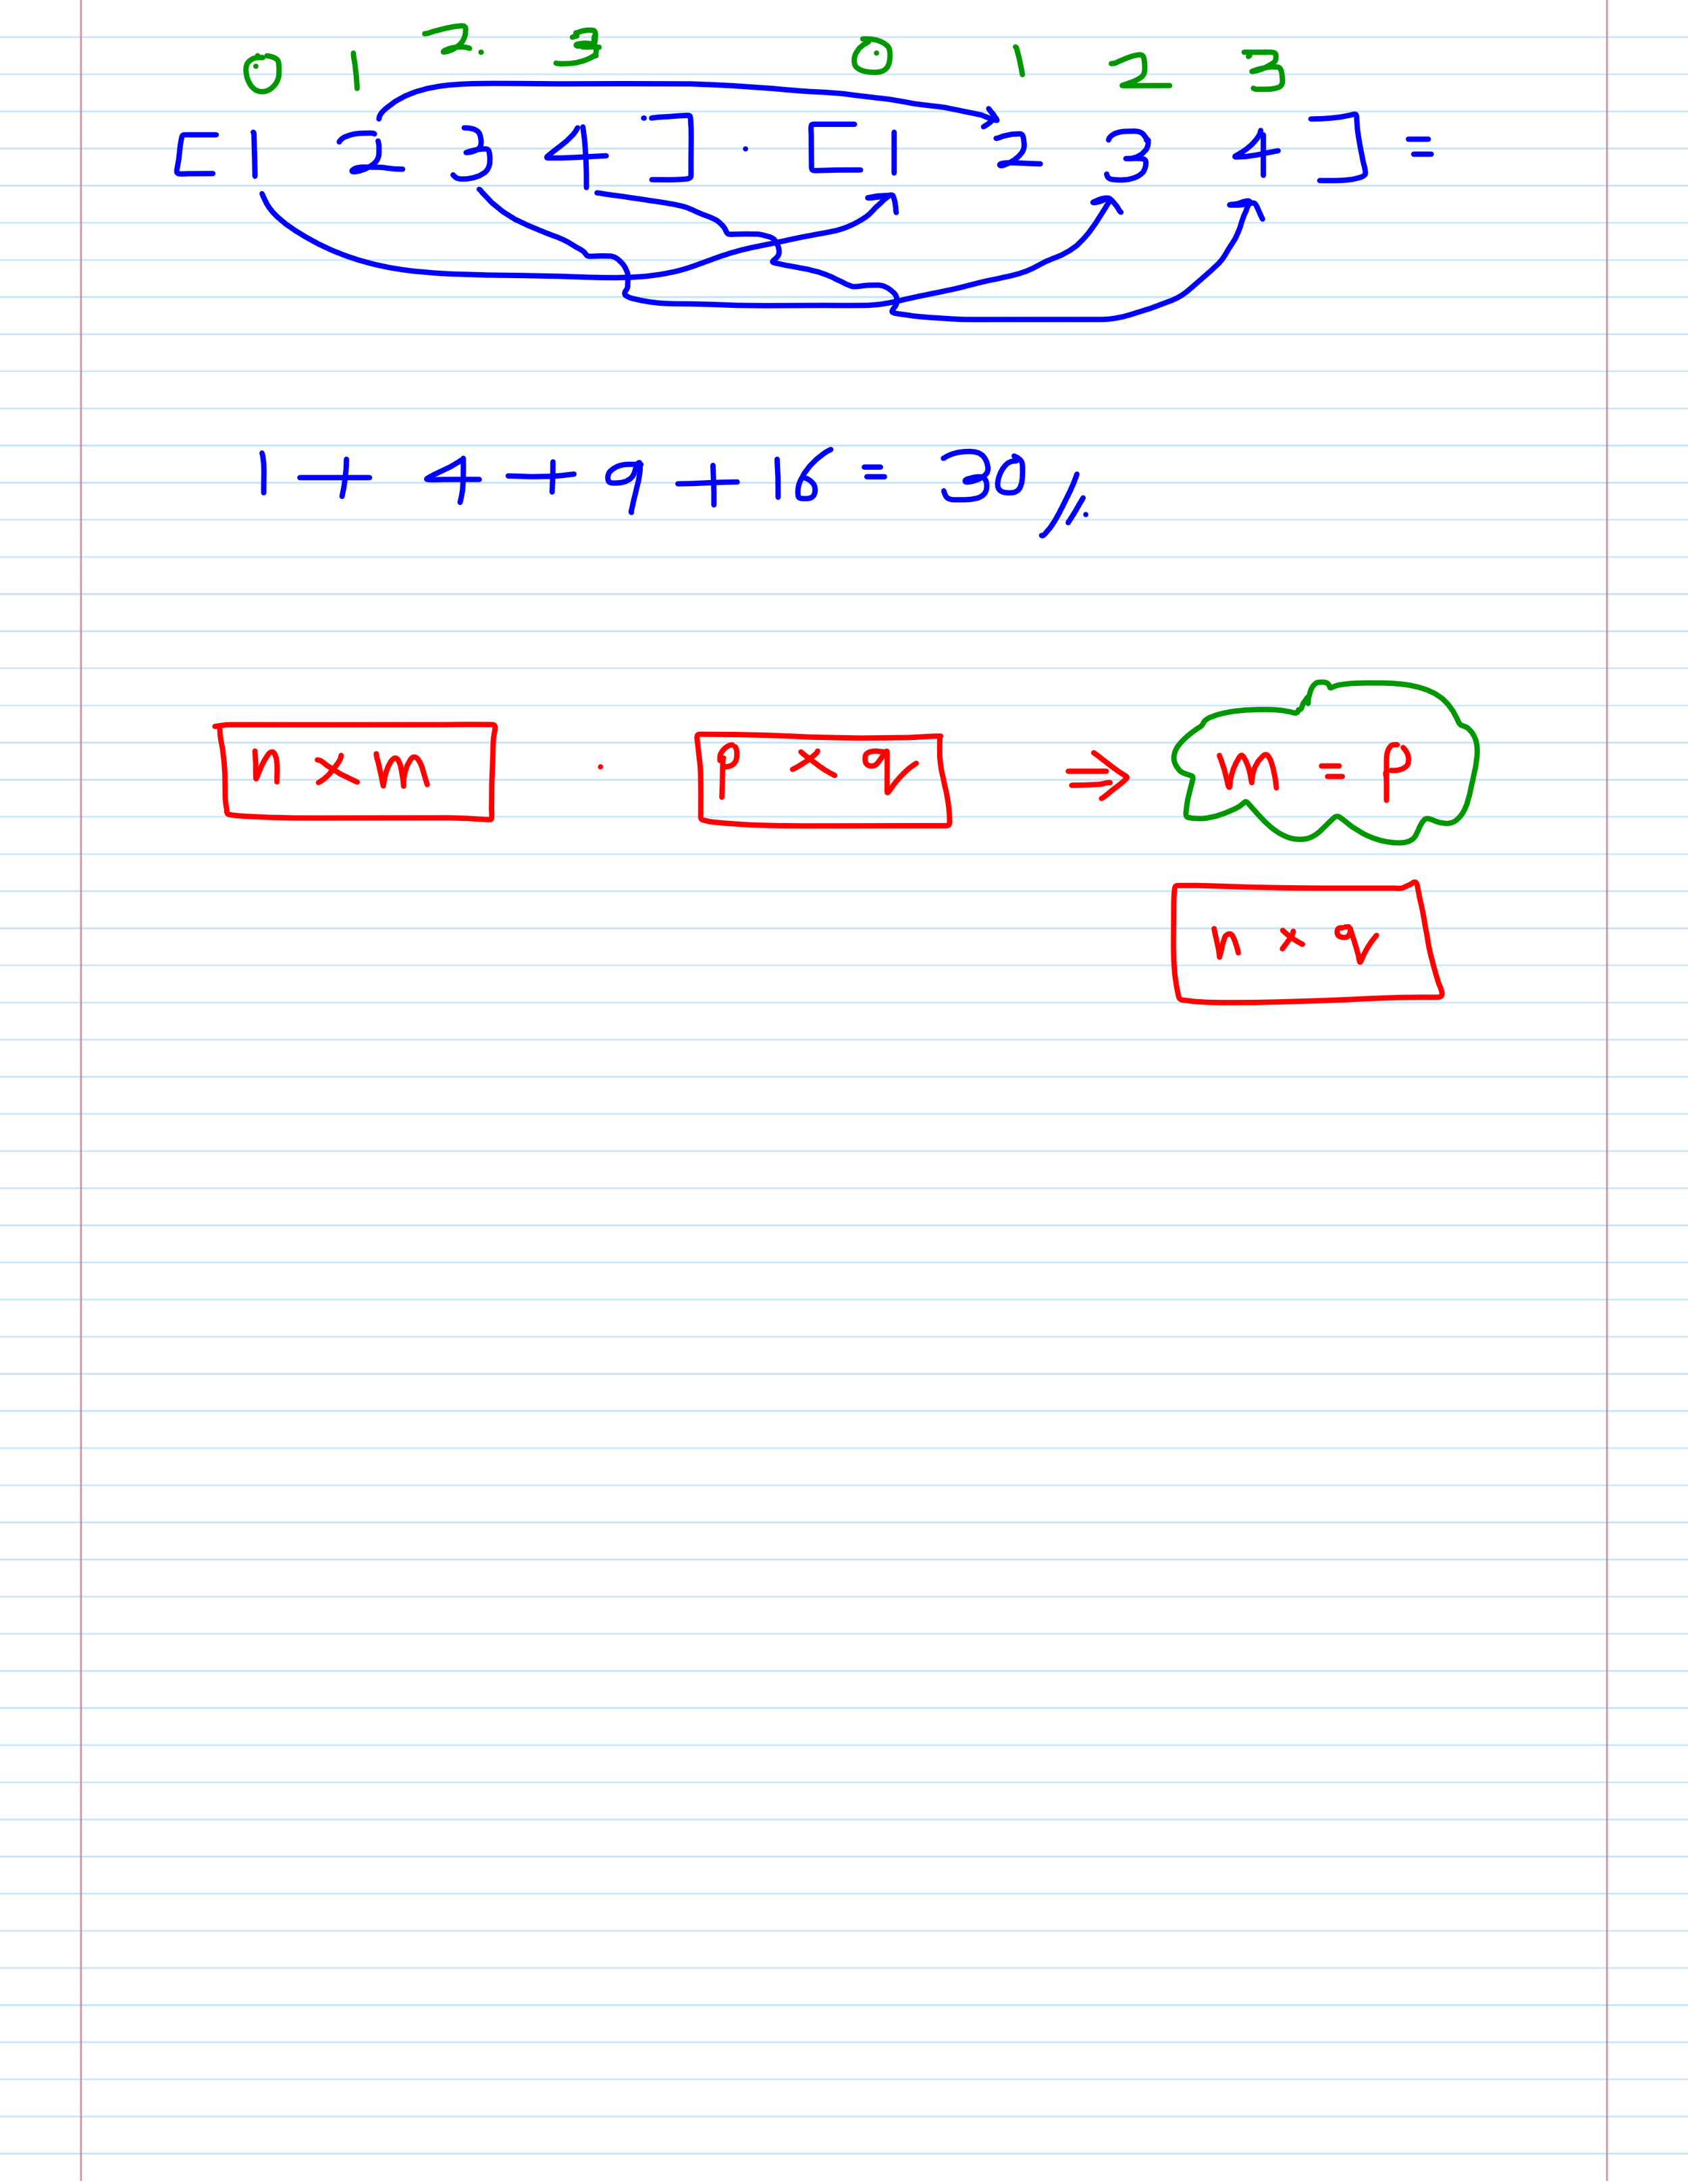 0 1 2. 3 0 1 2 3
[1 2 3 4] . [1 2 3 4] =
1 + 4 + 9 + 16 = 30 //.
n x m . p x q ⇒ m = p
n x q